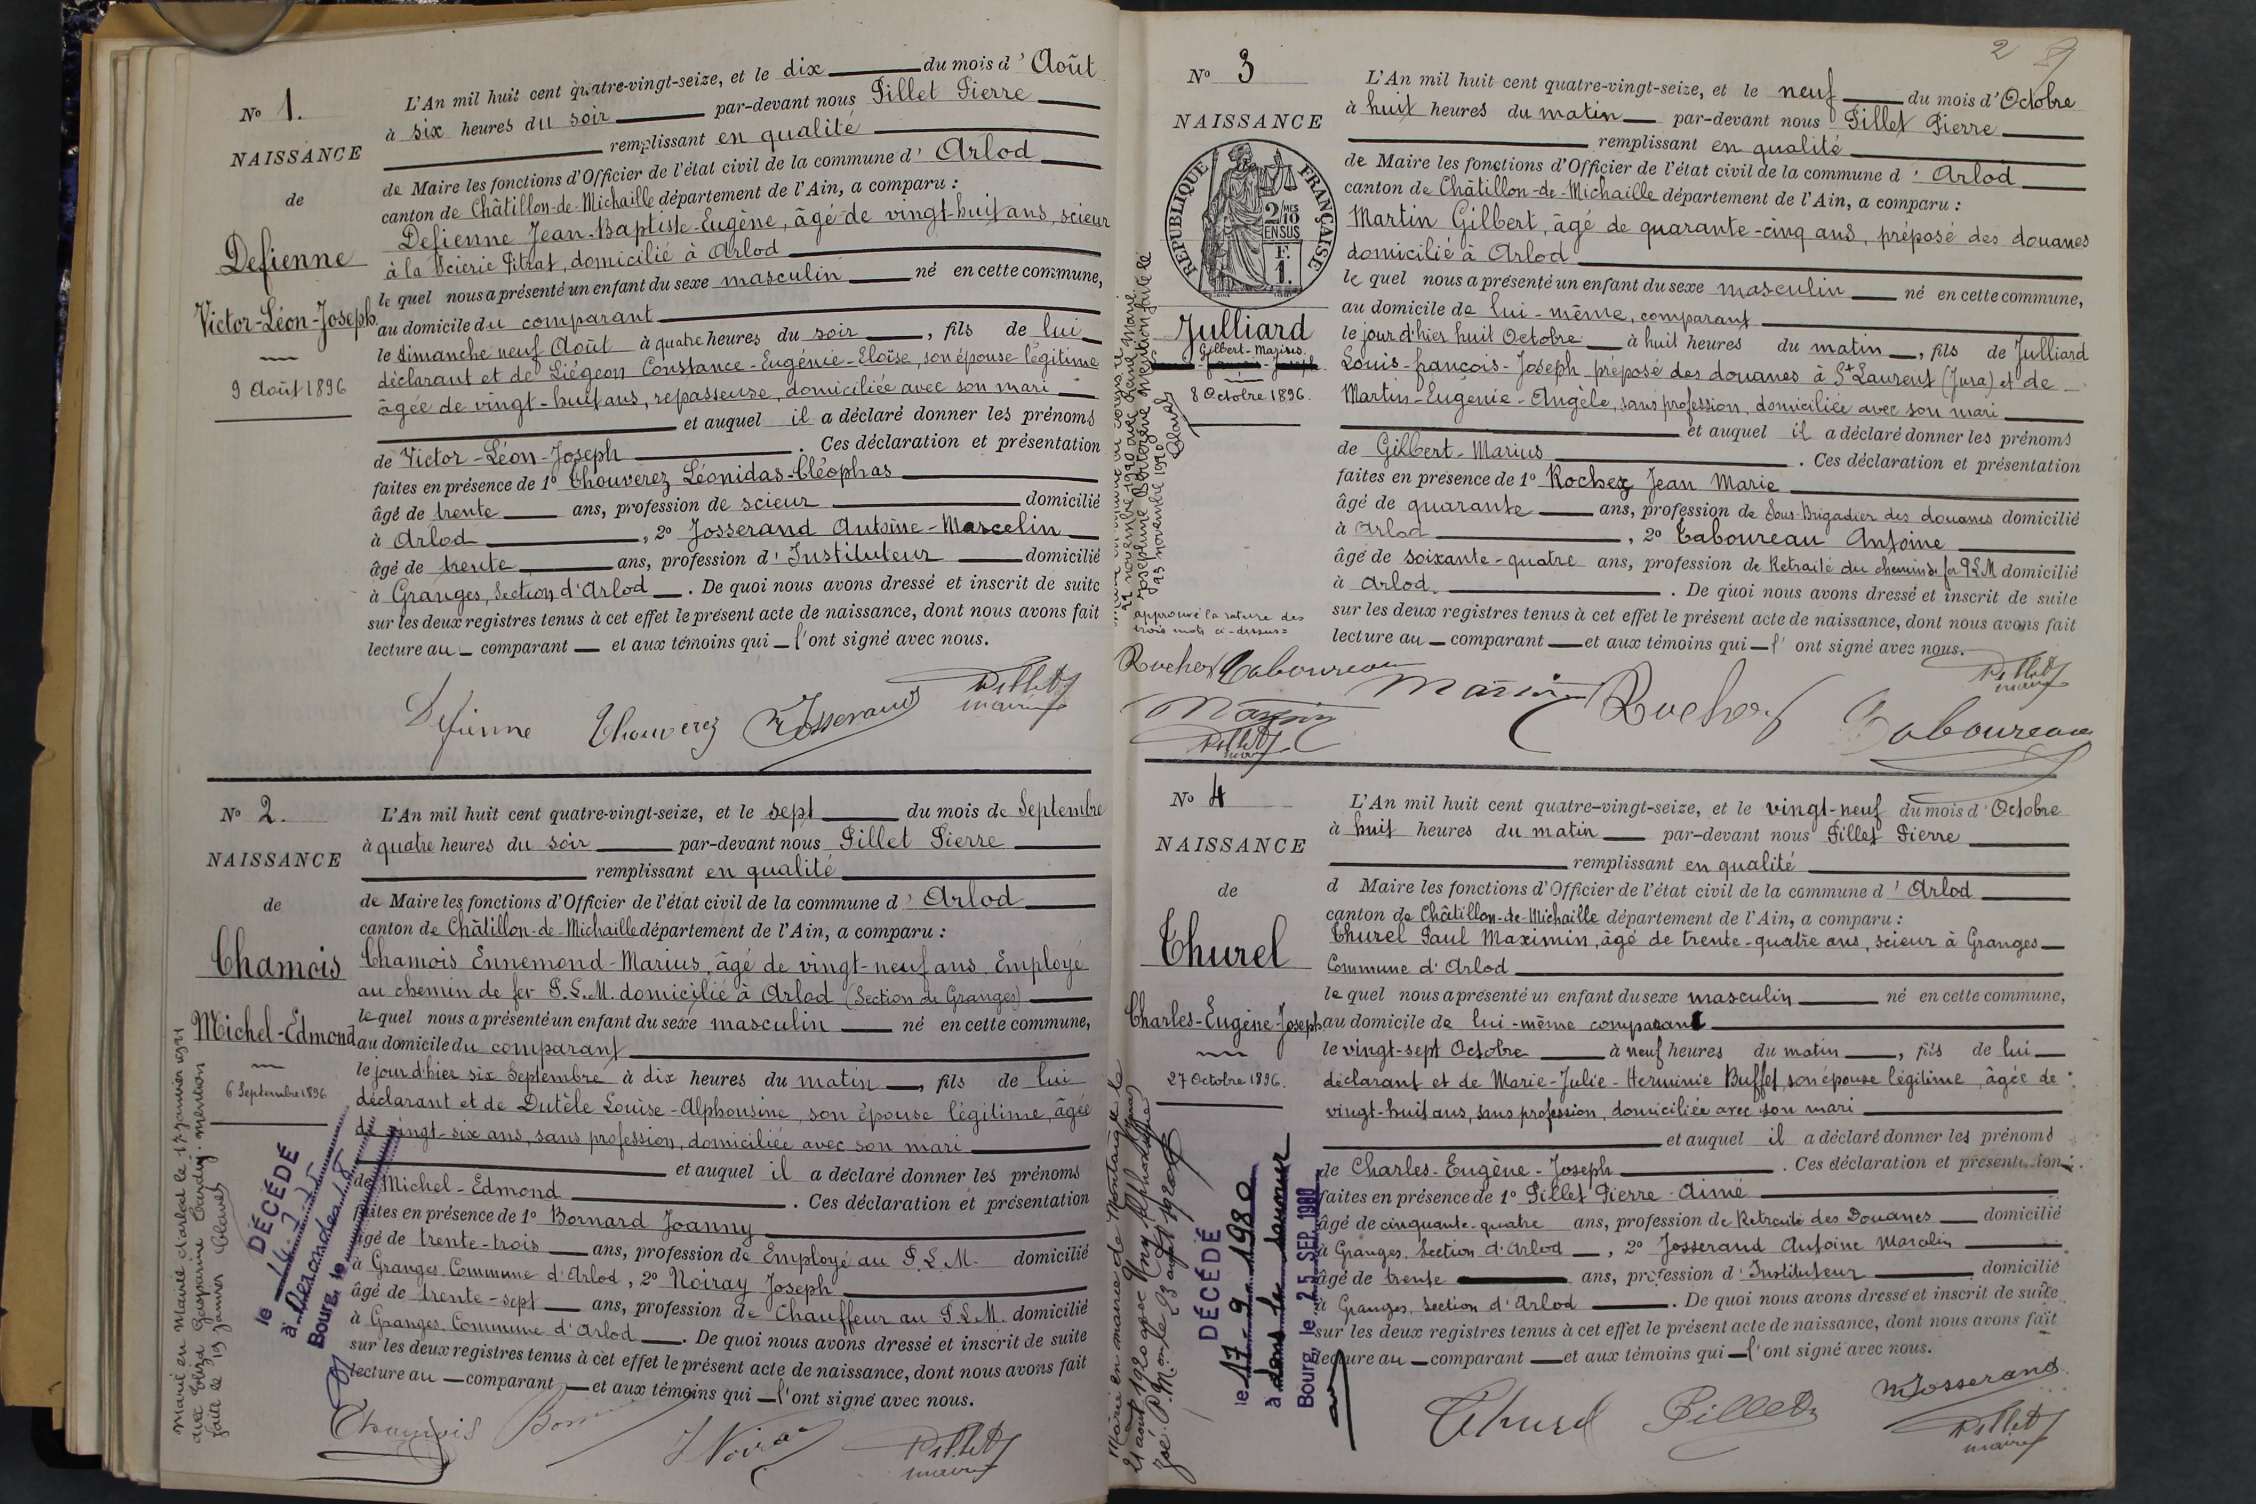 N° 1.
NAISSANCE
de
Defienne
Victor-Léon-Joseph
9 Août 1896
L'An mil huit cent quatre-vingt-seize, et le dix du mois d'Août
à six heures du soir par-devant nous Pillet Pierre
remplissant en qualité
de Maire les fonctions d'Officier de l'état civil de la commune d'Arlod
canton de Châtillon-de-Michaille département de l'Ain, a comparu :
Defienne Jean-Baptiste-Eugène, âgé de vingt-huit ans, scieur
à la Scierie Pitrat, domicilié à Arlod
lequel nous a présenté un enfant du sexe masculin né en cette commune,
au domicile du comparant
le dimanche neuf Août à quatre heures du soir, fils de lui
déclarant et de Liégeon Constance-Eugénie-Eloïse, son épouse légitime
âgée de vingt-huit ans, repasseuse, domiciliée avec son mari
et auquel il a déclaré donner les prénoms
de Victor-Léon-Joseph. Ces déclaration et présentation
faites en présence de 1° Thouverez Léonidas-Cléophas
âgé de trente ans, profession de scieur domicilié
à Arlod, 2° Josserand Antoine-Marcelin
âgé de trente ans, profession d'Instituteur domicilié
à Granges, Section d'Arlod. De quoi nous avons dressé et inscrit de suite
sur les deux registres tenus à cet effet le présent acte de naissance, dont nous avons fait
lecture au comparant et aux témoins qui l'ont signé avec nous.
Defienne Thouverez Josserand Pillet
maire
N° 2.
NAISSANCE
de
Chamois
Michel-Edmond
6 Septembre 1896
L'An mil huit cent quatre-vingt-seize, et le sept du mois de Septembre
à quatre heures du soir par-devant nous Pillet Pierre
remplissant en qualité
de Maire les fonctions d'Officier de l'état civil de la commune d'Arlod
canton de Châtillon-de-Michaille département de l'Ain, a comparu :
Chamois Ennemond-Marius, âgé de vingt-neuf ans, Employé
au chemin de fer P.L.M. domicilié à Arlod (Section de Granges)
lequel nous a présenté un enfant du sexe masculin né en cette commune,
au domicile du comparant
le jour d'hier six Septembre à dix heures du matin, fils de lui
déclarant et de Dutèle Louise-Alphonsine, son épouse légitime, âgée
de vingt-six ans, sans profession, domiciliée avec son mari
et auquel il a déclaré donner les prénoms
de Michel-Edmond. Ces déclaration et présentation
faites en présence de 1° Bornard Joanny
âgé de trente-trois ans, profession de Employé au P.L.M. domicilié
à Granges, Commune d'Arlod, 2° Noiray Joseph
âgé de trente-sept ans, profession de Chauffeur au P.L.M. domicilié
à Granges, Commune d'Arlod. De quoi nous avons dressé et inscrit de suite
sur les deux registres tenus à cet effet le présent acte de naissance, dont nous avons fait
lecture au comparant et aux témoins qui l'ont signé avec nous.
Chamois J Noiray Pillet
maire
Marié en Mairie d'arlod le 17 janvier 1921
avec Gasparine mention
faite le 19 janvier
DÉCÉDÉ
le
à
Bourg, le
2
N° 3
NAISSANCE
RÉPUBLIQUE FRANÇAISE
2/10 MES
EN SUS
F.
1.
Julliard
Gilbert-Marius
8 Octobre 1896.
L'An mil huit cent quatre-vingt-seize, et le neuf du mois d'Octobre
à huit heures du matin par-devant nous Pillet Pierre
remplissant en qualité
de Maire les fonctions d'Officier de l'état civil de la commune d'Arlod
canton de Châtillon-de-Michaille département de l'Ain, a comparu :
Martin Gilbert, âgé de quarante-cinq ans, préposé des douanes
domicilié à Arlod
lequel nous a présenté un enfant du sexe masculin né en cette commune,
au domicile de lui-même, comparant
le jour d'hier huit Octobre à huit heures du matin, fils de Julliard
Louis-françois-Joseph préposé des douanes à St Laurent (Jura) et de
Martin-Eugénie-Angèle, sans profession, domiciliée avec son mari
et auquel il a déclaré donner les prénoms
de Gilbert-Marius. Ces déclaration et présentation
faites en présence de 1° Rochez Jean Marie
âgé de quarante ans, profession de Sous-Brigadier des douanes domicilié
à Arlod, 2° Taboureau Antoine
âgé de soixante-quatre ans, profession de Retraité du chemin de fer PLM domicilié
à Arlod. De quoi nous avons dressé et inscrit de suite
sur les deux registres tenus à cet effet le présent acte de naissance, dont nous avons fait
lecture au comparant et aux témoins qui l'ont signé avec nous.
approuvé la rature des
trois mots ci-dessus =
Rochez Taboureau
Martin
Pillet
maire
Martin Rochez Taboureau
Pillet
maire
21 novembre 1920 avec
Joséphine mention faite le
23 novembre 1920
N° 4
NAISSANCE
de
Thurel
Charles-Eugène-Joseph
27 Octobre 1896.
L'An mil huit cent quatre-vingt-seize, et le vingt-neuf du mois d'Octobre
à huit heures du matin par-devant nous Pillet Pierre
remplissant en qualité
d Maire les fonctions d'Officier de l'état civil de la commune d'Arlod
canton de Châtillon-de-Michaille département de l'Ain, a comparu :
Thurel Paul Maximin, âgé de trente-quatre ans, scieur à Granges
Commune d'Arlod
lequel nous a présenté un enfant du sexe masculin né en cette commune,
au domicile de lui-même comparant
le vingt-sept Octobre à neuf heures du matin, fils de lui
déclarant et de Marie-Julie-Herminie Buffet, son épouse légitime, âgée de
vingt-huit ans, sans profession, domiciliée avec son mari
et auquel il a déclaré donner les prénoms
de Charles-Eugène-Joseph. Ces déclaration et présentation
faites en présence de 1° Pillet Pierre-Aimé
âgé de cinquante-quatre ans, profession de Retraité des Douanes domicilié
à Granges, Section d'Arlod, 2° Josserand Antoine Marcelin
âgé de trente ans, profession d'Instituteur domicilié
à Granges, Section d'Arlod. De quoi nous avons dressé et inscrit de suite
sur les deux registres tenus à cet effet le présent acte de naissance, dont nous avons fait
lecture au comparant et aux témoins qui l'ont signé avec nous.
Thurel Pillet Josserand
Pillet
maire
Marié en mairie de Montanges le
21 août 1920 avec
DÉCÉDÉ
le 17-9-1980
à
Bourg, le 25 SEP. 1980